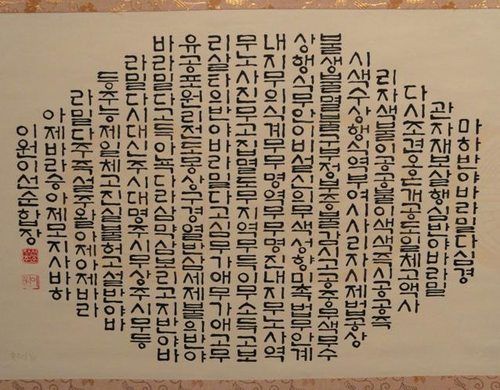 마하반야바라밀다심경
관자재보살행심반야바라밀
다시조견오온개공도일체고액사
리자색불이공공불이색색즉시공공즉
시색수상행식역부여시사리자시제법공상
불생불멸불구부정부증불감시고공중무색무수
상행식무안이비설신의무색성향미촉법무안계
내지무의식계무무명역무무명진내지무노사역
무노사진무고집멸도무지역무득이무소득고보
리살타의반야바라밀다고심무가애무가애고무
유공포원리전도몽상구경열반삼세제불의반야
바라밀다고득아뇩다라삼먁삼보리고지반야바
라밀다시대신주시대명주시무상주시무등
등주능제일체고진실불허고설반야바
라밀다주즉설주왈아제아제바라
아제바라승아제모지사바하